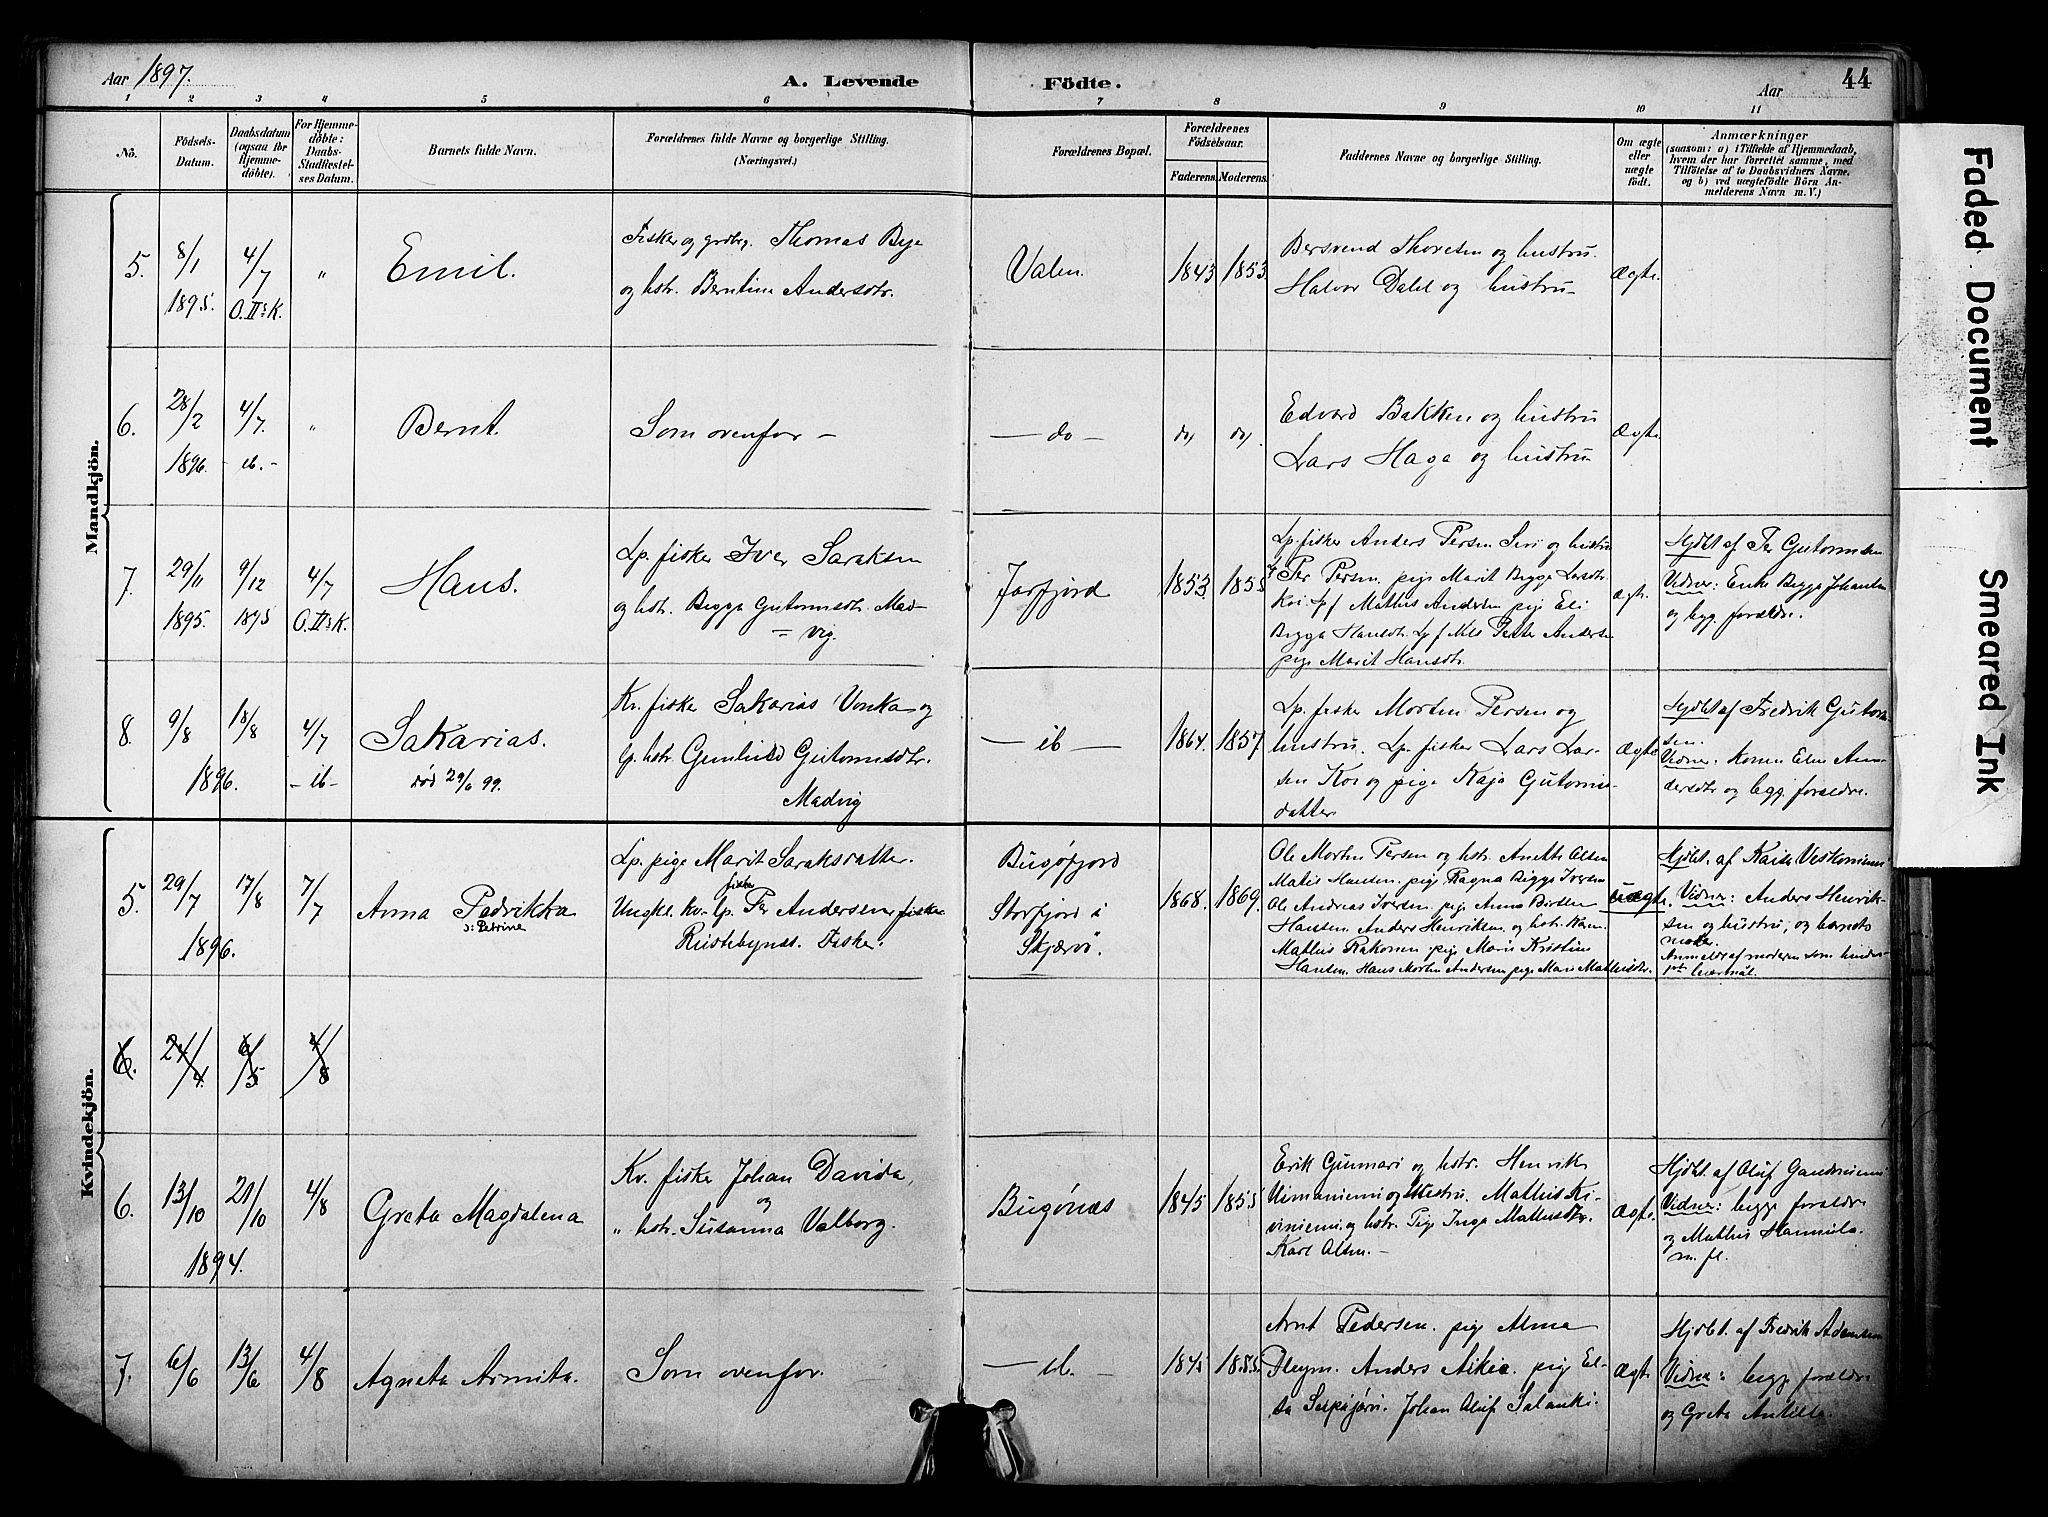 Aar 1897.
A. Levende
Födte.
Aar
44
1 2 3 4 5 6 7 8 9 10 11
No.
Födsels-
Datum.
Daabsdatum
(ogsaa for
Hjemme-
döbte).
For Hjemme-
döbte:
Daabs-
Stadfæstel-
ses Datum.
Barnets fulde Navn.
Forældrenes fulde Navne og borgerlige Stilling.
(Næringsvei.)
Forældrenes Bopæl.
Forældrenes
Födselsaar.
Faderens. Moderens.
Faddernes Navne og borgerlige Stilling.
Om ægte
eller
uægte
födt.
Anmærkninger
(saasom: a) i Tilfælde af Hjemmedaab,
hvem der har forrettet samme, med
Tilföielse af to Daabsvidners Navne,
og b) ved uægtefödte Börn An-
melderens Navn m. V.)
Mandkjön.
5.
8/1
1895.
4/7
O. II s K.
"
Emil.
Fisker og grdbr. Thomas Bye
og hstr. Berntine Andersdtr.
Valen.
1843 1853
Bersvend Thoresen og hustru.
Halvor Dahl og hustru
Ægte.
6.
28/2
1896.
4/7.
- ib. -
"
Bernt.
Som ovenfor -
- do -
do, do,.
Edvard Bakken og hustru
Lars Haga og hustru
Ægte.
7.
29/11
1895.
9/12
1895
4/7
O. II s K.
Hans.
Lp. fisker Iver Saraksen
og hstr. Bigga Gutormsdtr. Mad-
= vig.
Jarfjord
1853 1855
Lp. fisker Anders Persen Siri og hustru
Per Persen. pige Marit Bigga Larsdtr.
Koi. Lp f Mathis Andersen pige Eli
Bigga Hansdtr. Lp f Nels Peter Andersen
pige Marit Hansdtr.
Ægte.
Hjdbt af Per Gutormsen
Vidner: Enke Bigga Johansen
og begg. forældre.
8.
9/8
18/8
1896.
4/7
- ib -
Sakarias.
død 29/6 99.
Kv. fisker Sakarias Vonka og
lp. hstr. Gunhild Gutormsdtr.
Madvig
- ib -
1864. 1857.
Lp. fisker Morten Persen og
hustru. Lp. fisker Lars Lar-
sen Koi og pige Kaja Gutorms-
datter
Ægte
Hjdbt af Fredrik Gutorm-
sen.
Vidner: Konen Elen An-
dersdtr og begg. forældre.
Kvindekjön.
5.
29/7
17/8
1896.
7/7
Anna Pedrikka
ɔ: Petrine
Lp. pige Marit Saraksdatter.
fisker
Ungkl. kv. lp. Per Andersen
Bugøfjord
Storfjord i
Skjærvö.
1868. 1869.
Ole Morten Persen og hstr. Anette Olsen
Matis Hansen. pige Ragna Bigga Iversen
Ole Andreas Iversen. pige Anna Birthe
Hansen Anders Henriksen og hstr. Karen
Mathis Rakonen pige Marie Kristine
Hansen. Hans Morten Andersen pige Mari Mathisdtr.
uægte.
Hjdbt. af Kaisa
Vidner: Anders Henrik-
sen og hustru, og barnets
moder.
Anmeldt af moderen som hindes
1ste leiermål.
6.
24/4
6/5
4/8
6.
13/10
21/10
1894.
4/8
Greta Magdalena
Kv. fisker Johan Davida,
og
" hstr. Susanna Valborg.
Bugønæs
1845 1855
Erik Gunnari og hstr. Henrik
Niemaniemi og hustru. Mathis Ki-
viniemi og hstr. Pige Inga Mathisdtr.
Karl Olsen. -
Ægte.
Hjdbt. af Oluf
Vidner: begge forældre
og Mathis Hannula.
m. fl.
7.
6/6
13/6
4/8
Agneta Armita.
Som ovenfor.
- ib. -
1845 1855.
Arnt Pedersen. pige Alma
Pleym. Anders Aikio. pige El-
sa Seipäjärvi. Johan Oluf Salanki.
Ægte.
Hjdbt. af Fredrik Adamsen
Vidner: begge forældre
og Greta Antilla.
Faded Document
Smeared Ink